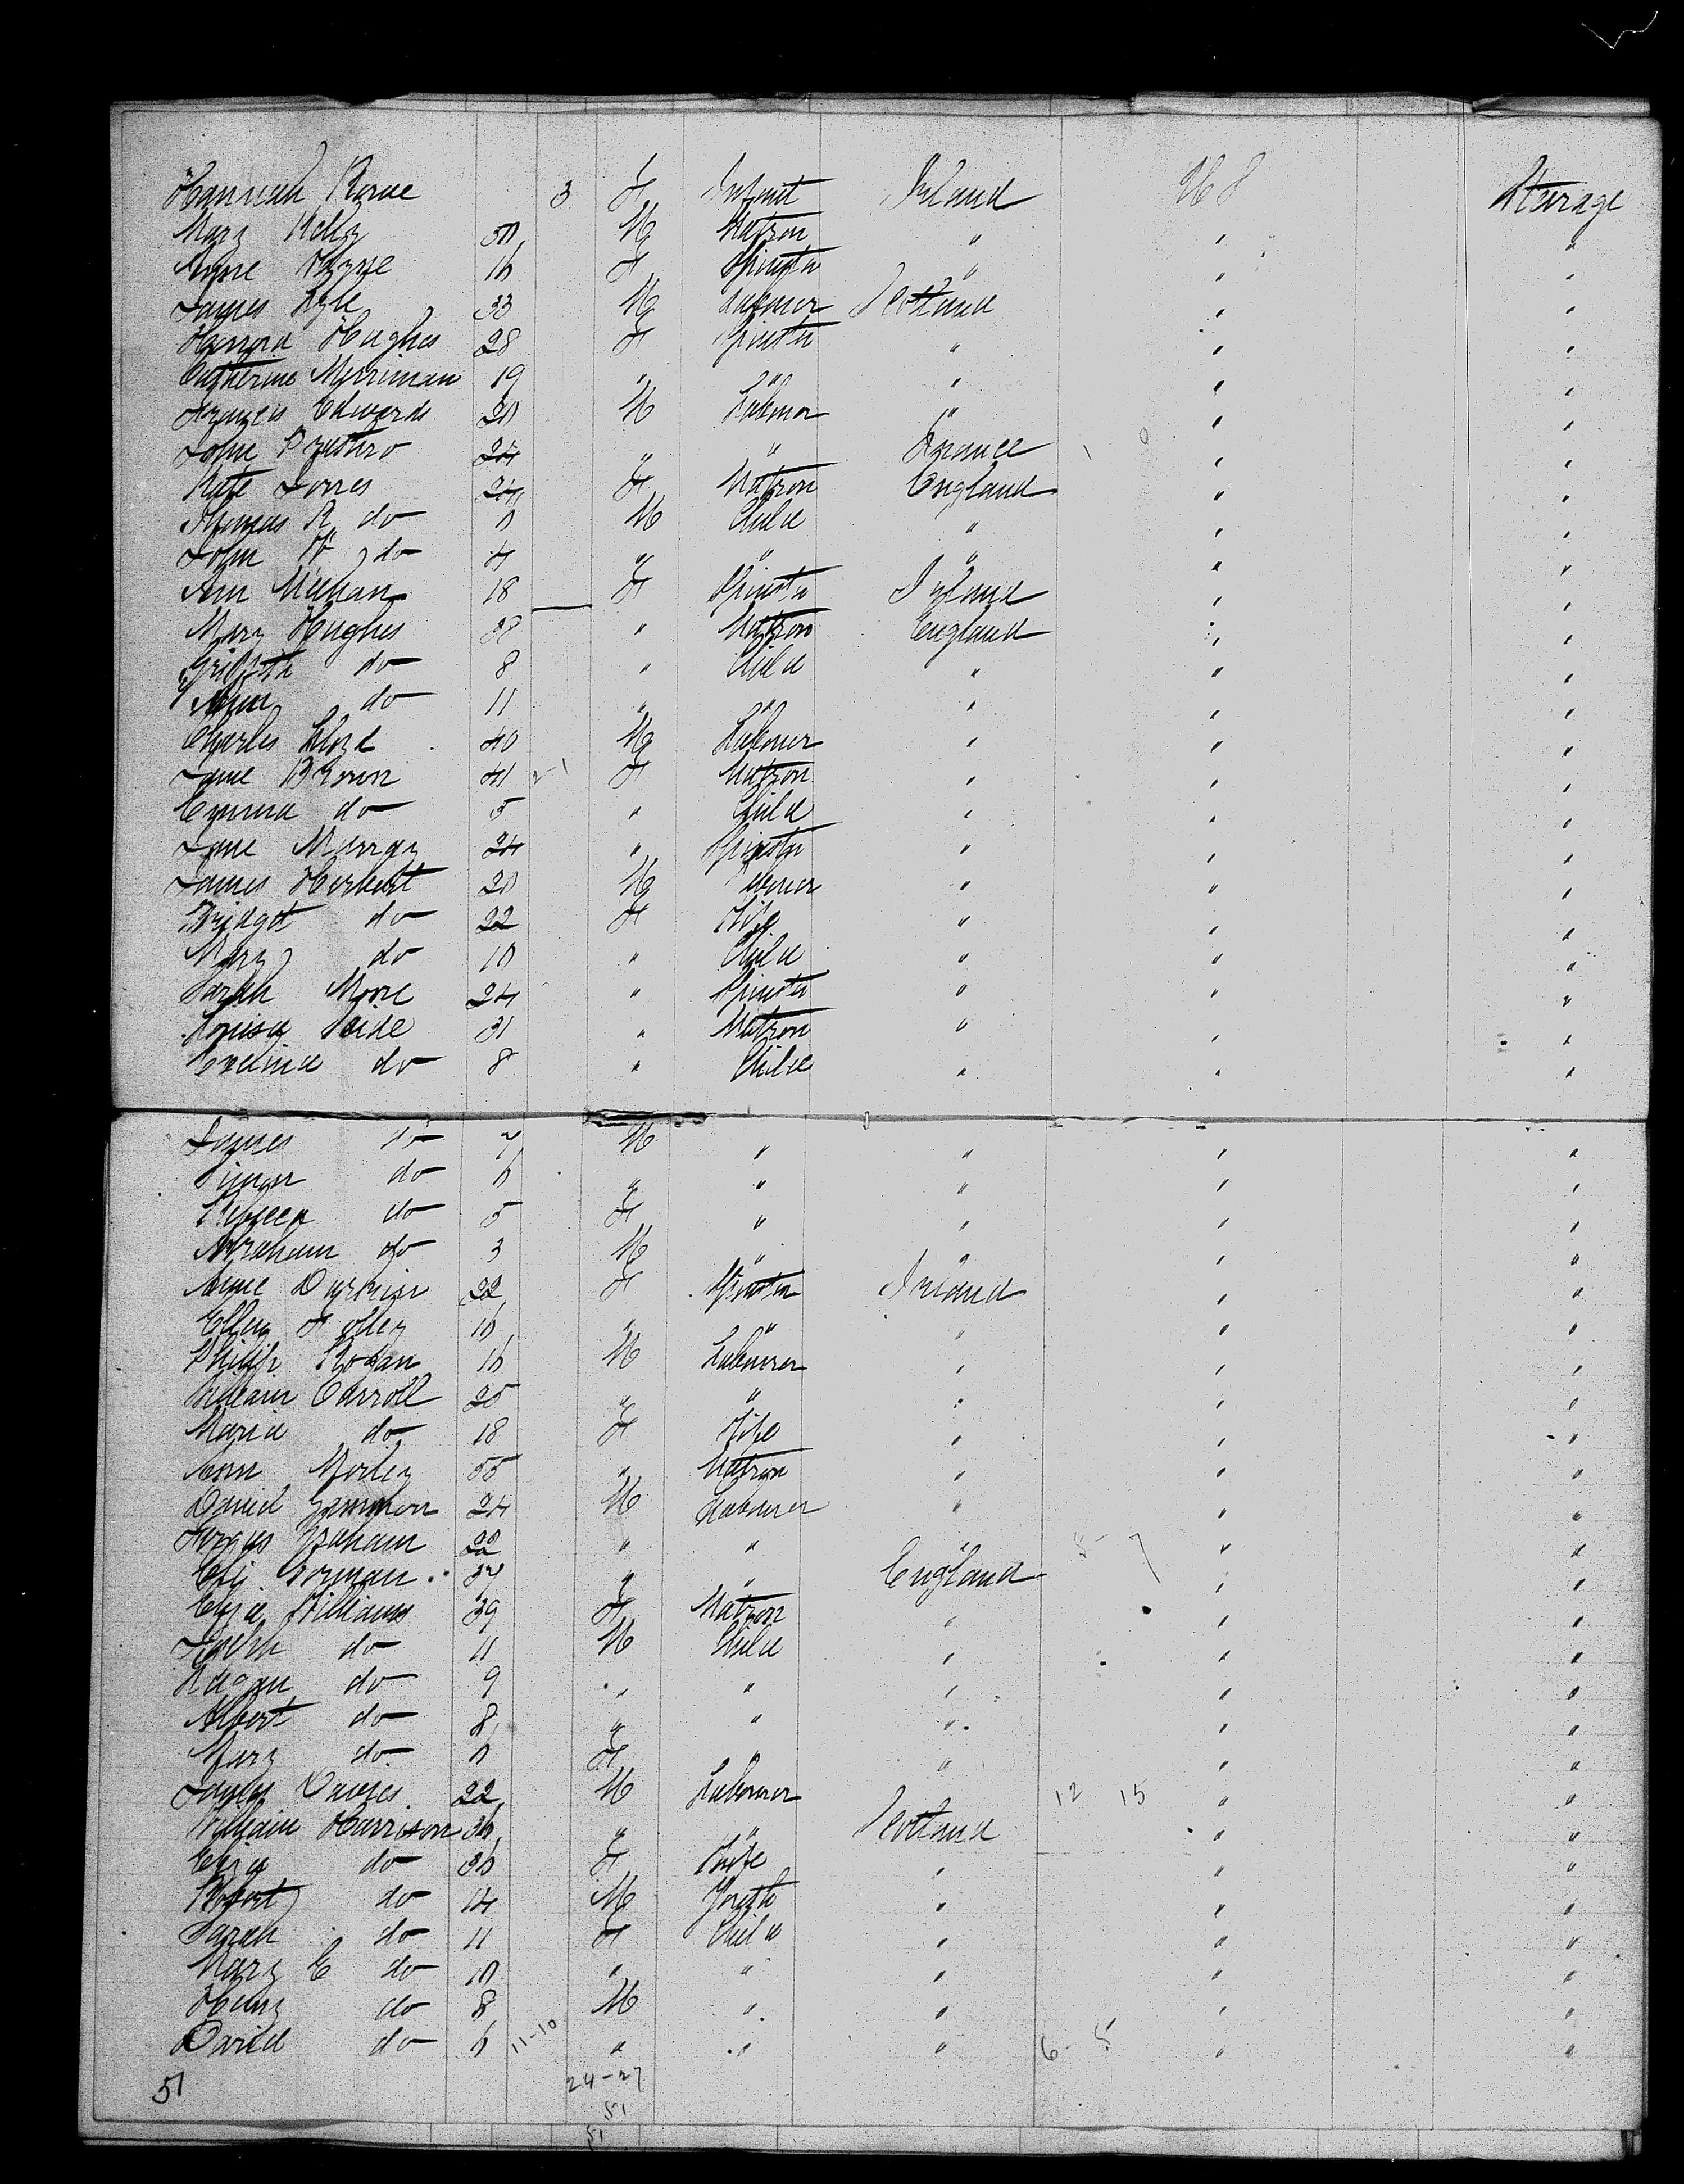 Hannah Rowe 3 F Infant Ireland U S Steerage
Mary Kelly 50 M Matron " " "
Anne Payne 16 F Spinster " " "
James Lyle 33 M Labourer Scotland " "
Hannah Hughes 28 F Spinster " " "
Catherine Merriman 19 " " " " "
Francis Edwards 20 M Labourer " " "
John Prythro 24 " " France 1 0 " "
Kate Jones 24 F Matron England " "
Thomas R do 6 M Child " " "
John W do 4 " " " " "
Ann Meehan 18 F Spinster Ireland " "
Mary Hughes 38 " Matron England " "
Griffith do 8 " Child " " "
Ann do 11 " " " " "
Charles Lloyd 40 M Labourer " " "
Jane Brown 41 2-1 F Matron " " "
Emma do 5 " Child " " "
Jane Murray 24 " Spinster " " "
James Herbert 20 M Labourer " " "
Bridget do 22 F Wife " " "
Mary do 10 " Child " " "
Sarah Moore 24 " Spinster " " "
Louisa 31 " Matron " " "
Evelina do 8 " Child " " "
James do 7 M " " " "
Simon do 6 " " " " "
Rebecca do 5 F " " " "
Abraham do 3 M " " " "
Anne 22 F Spinster Ireland " "
Ellen Folley 16 " " " " "
Philip Hogan 16 M Labourer " " "
William Carroll 25 " " " " "
Maria do 18 F Wife " " "
Ann Morley 55 " Matron " " "
David Gammon 24 M Labourer " " "
Fergus Graham 22 " " " " "
Eli Gorman 37 " " England 8-7 " "
Eliza Williams 39 F Matron " " "
John do 11 M Child " " "
do 9 " " " " "
Albert do 8 " " " " "
Mary do 6 F " " " "
James Davies 22 M Labourer " 12 15 " "
William Harrison 36 " " Scotland " "
Eliza do 36 F Wife " " "
Robert do 14 M Youth " " "
Sarah do 11 F Child " " "
Mary E do 10 " " " " "
Henry do 8 M " " " "
David do 6 11-10 " " " 6-5 " "
51 24-27
51
51